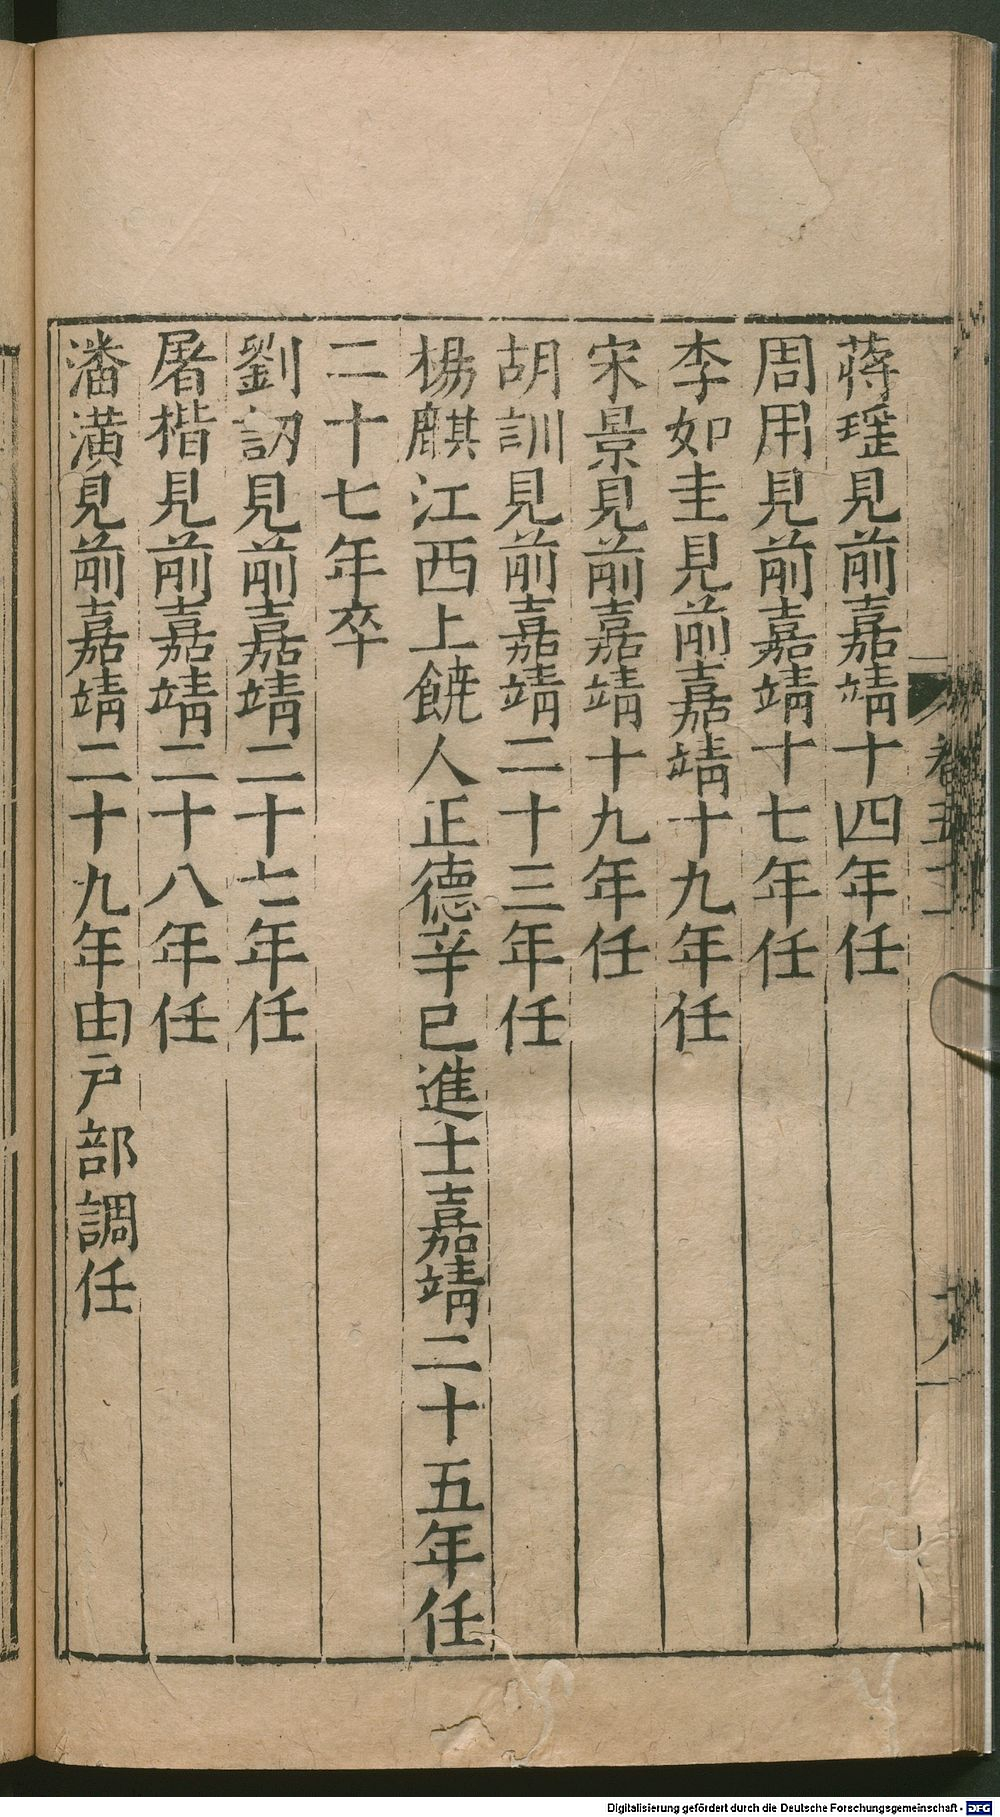 蔣瑤見前嘉靖十四年任
周用見前嘉靖十七年任
李如圭見前嘉靖十九年任
宋景見前嘉靖十九年任
胡訓見前嘉靖二十三年任
楊麒江西上饒人正德辛巳進士嘉靖二十五年任
二十七年卒
劉訒見前嘉靖二十七年任
屠楷見前嘉靖二十八年任
潘潢見前嘉靖二十九年由戶部調任
Digitalisierung gefördert durch die Deutsche Forschungsgemeinschaft - DFG